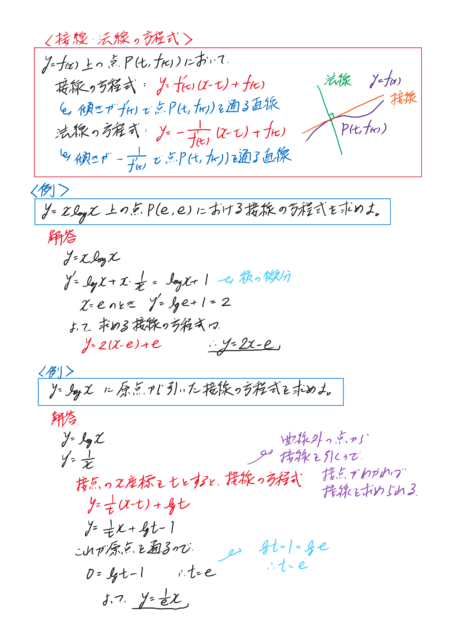 〈接線・法線の方程式〉
y=f(x)上の点P(t, f(t))において
接線の方程式： y=f'(t)(x-t)+f(t)
↳ 傾きがf'(t)で点P(t, f(t))を通る直線
法線の方程式： y=-1/f'(t) (x-t)+f(t)
↳ 傾きが-1/f'(t)で点P(t, f(t))を通る直線
法線
y=f(x)
接線
P(t, f(t))
〈例〉
y=xlogx 上の点P(e, e)における接線の方程式を求めよ。
解答
y=xlogx
y'=logx+x・1/x=logx+1 ↝積の微分
x=eのとき y'=loge+1=2
よって求める接線の方程式は
y=2(x-e)+e ∴y=2x-e
〈例〉
y=logx に原点から引いた接線の方程式を求めよ。
解答
y=logx
y=1/x
接点のx座標をtとすると、接線の方程式
y=1/t(x-t)+logt
y=1/t x+logt-1
これが原点を通るので
0=logt-1 ∴t=e
よって y=1/e x
曲線外の点から
接線を引くので
接点がわかれば
接線を求められる
logt-1=loge
∴t=e